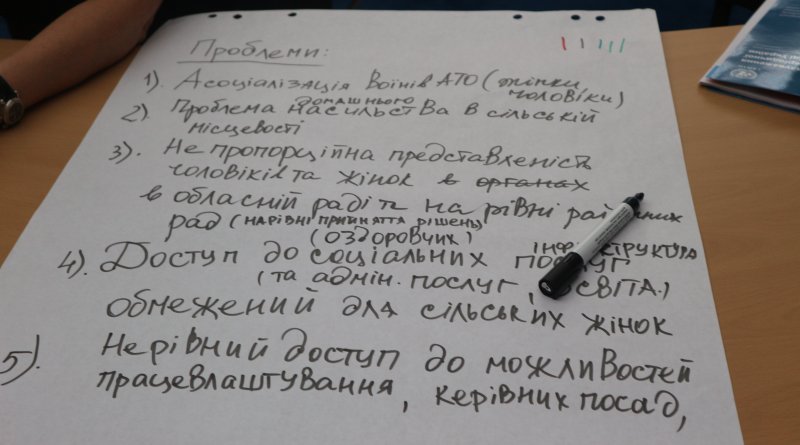 Проблеми:
1). Асоціалізація Воїнів АТО (жінки
чоловіки)
домашнього
2). Проблема насильства в сільській
місцевості
3). Не пропорційна представленість
чоловіків та жінок в органах
в обласній раді та на рівні
рад (на рівні прийняття рішень)
(оздоровчих)
4). Доступ до соціальних послуг
(та адмін. послуг, освіта)
обмежений для сільських жінок
5). Нерівний доступ до можливостей
працевлаштування, керівних посад,